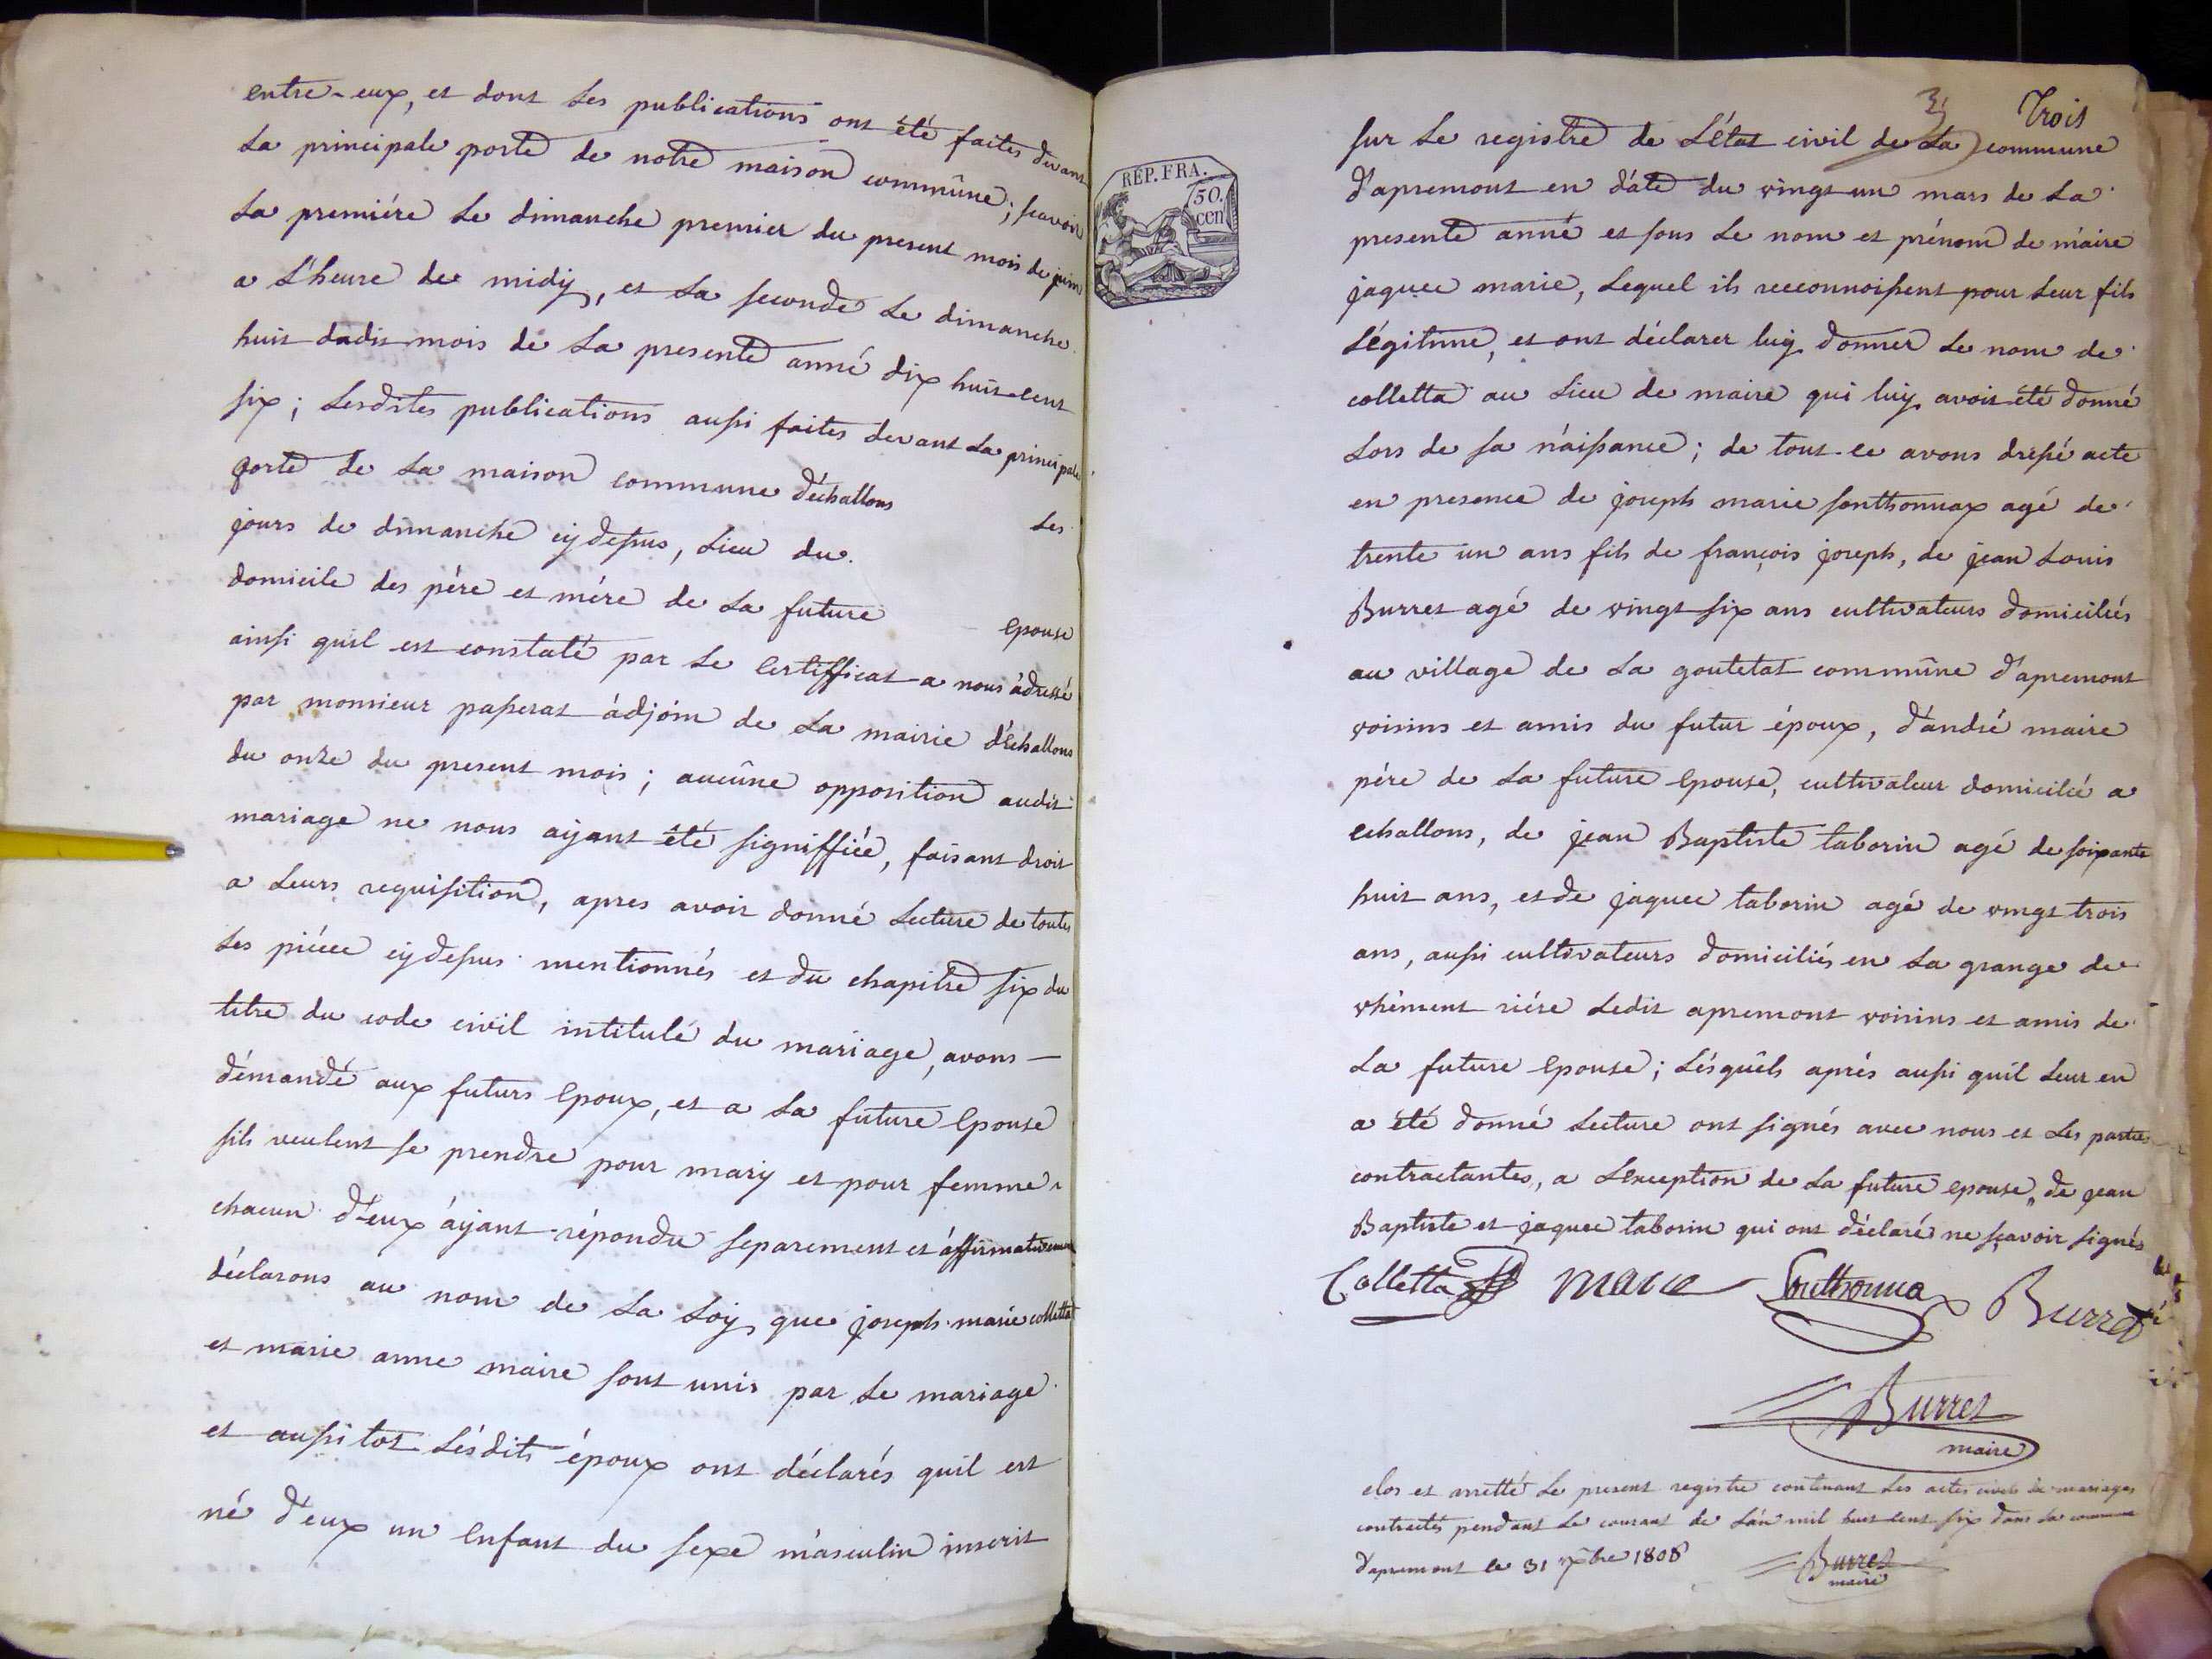 entre-eux, et dont les publications ont été faites devant
la principale porte de notre maison commûne ; scavoir
la premiére le dimanche premier du present mois de juin
a l'heure de midy, et la seconde le dimanche
huit dudit mois de la presente anné dix huit cent
six ; lesdites publications aussi faites devant la principale
porte de la maison commune d'échallons les
jours de dimanche cy dessus, lieu du
domicile des pére et mére de la future epouse
ainsi quil est constaté par le certifficat a nous àdressé
par monsieur passerat àdjoin de la mairie d'échallons
du onze du present mois ; aucûne opposition audit
mariage ne nous aÿant été signiffiée, faisant droit
a leurs requisition, apres avoir donné lecture de toutes
les piéces cy dessus mentionnés et du chapitre six du
titre du code civil intitulé du mariage, avons —
démandé aux futurs epoux, et a la future epouse
sils veulent se prendre pour mary et pour femme
chacun d'eux áÿant répondu separement et áffirmativement
déclarons au nom de la loy que joseph marie colletta
et marie anne maire sont unis par le mariage
et aussitot lésdits époux ont déclarés quil est
né d'eux un enfant du sexe másculin inscrit
3 Trois
REP. FRA.
50.
cen
sur le registre de l'état civil de la commune
d'apremont en dâte du vingt un mars de la
presente anné et sous le nom et prénom de maire
jaque marie, lequel ils reconnoissent pour leur fils
légitime, et ont déclarer luy donner le nom de
colletta au lieu de maire qui luy avoit été donné
lors de sa náissance ; de tout ce avons dressé acte
en presence de joseph marie sonthonnax agé de
trente un ans fils de françois joseph, de jean louis
Burret agé de vingt six ans cultivateurs domiciliés
au village de la goutetat commûne d'apremont
voisins et amis du futur époux, d'andré maire
pére de la future epouse, cultivateur domicilié a
echallons, de jean Baptiste taborin agé de soixante
huit ans, et de jaque taborin agé de vingt trois
ans, aussi cultivateurs domiciliés en la grange de
riére ledit apremont voisins et amis de
la future epouse ; lésquels aprés aussi quil leur en
a été donné lecture ont signés avec nous et les parties
contractantes, a l'exception de la future epouse, de jean
Baptiste et jaque taborin qui ont déclaré ne sçavoir signés
Colletta maire Sonthonnax Burret
Burret
maire
clos et arretté le present registre contenant les actes civils de mariages
contractés pendant le courant de l'án mil huit cent six dans la commune
d'apremont le 31 xbre 1806
Burret
maire